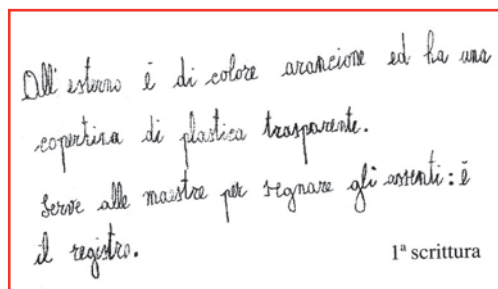 All'esterno è di colore arancione ed ha una
copertina di plastica trasparente.
Serve alle maestre per segnare gli assenti: è
il registro.
1ª scrittura